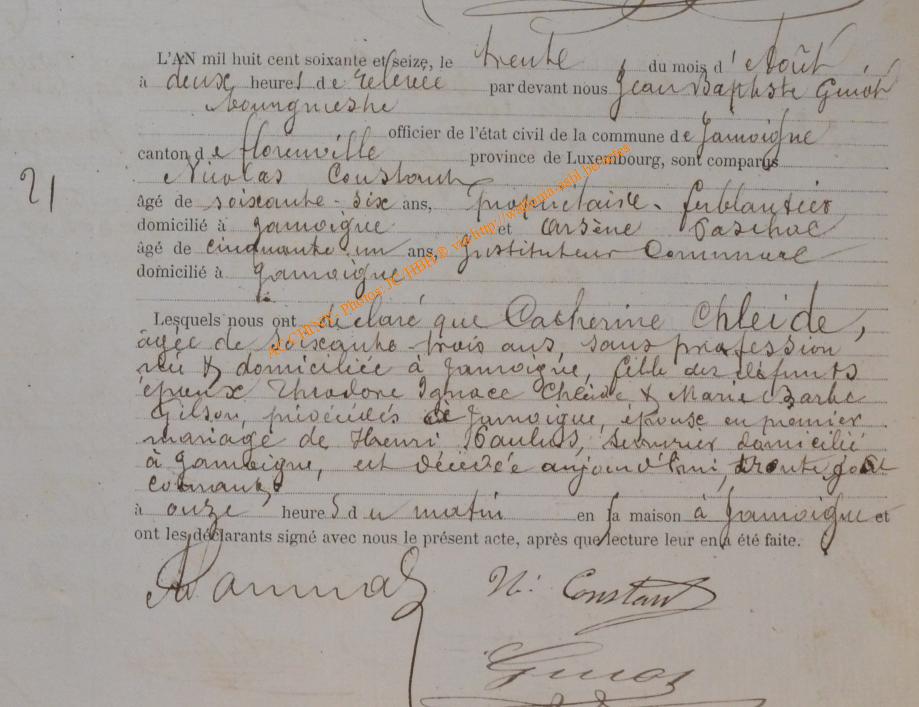 L'AN mil huit cent soixante et seize, le trente du mois d'Août
à deux heures de relevée par devant nous Jean Baptiste Guiot
bourgmestre
officier de l'état civil de la commune de Jamoigne
canton de Florenville province de Luxembourg, sont comparus
Nicolas Constant
âgé de soixante-six ans, propriétaire-ferblantier
domicilié à Jamoigne et Arsène
âgé de cinquante un ans, Instituteur Communal
domicilié à Jamoigne
21
Lesquels nous ont déclaré que Catherine Chleide,
âgée de soixante-trois ans, sans profession,
née & domiciliée à Jamoigne, fille des défunts
époux Théodore Ignace Chleide & Marie Barbe
Gilson, précédés de Jamoigne, épouse en premier
mariage de Henri Paulus, serrurier domicilié
à Jamoigne, est décédée aujourd'hui, trente Août
courant
à onze heures du matin en sa maison à Jamoigne et
ont les déclarants signé avec nous le présent acte, après que lecture leur en a été faite.
N. Constant
Guiot